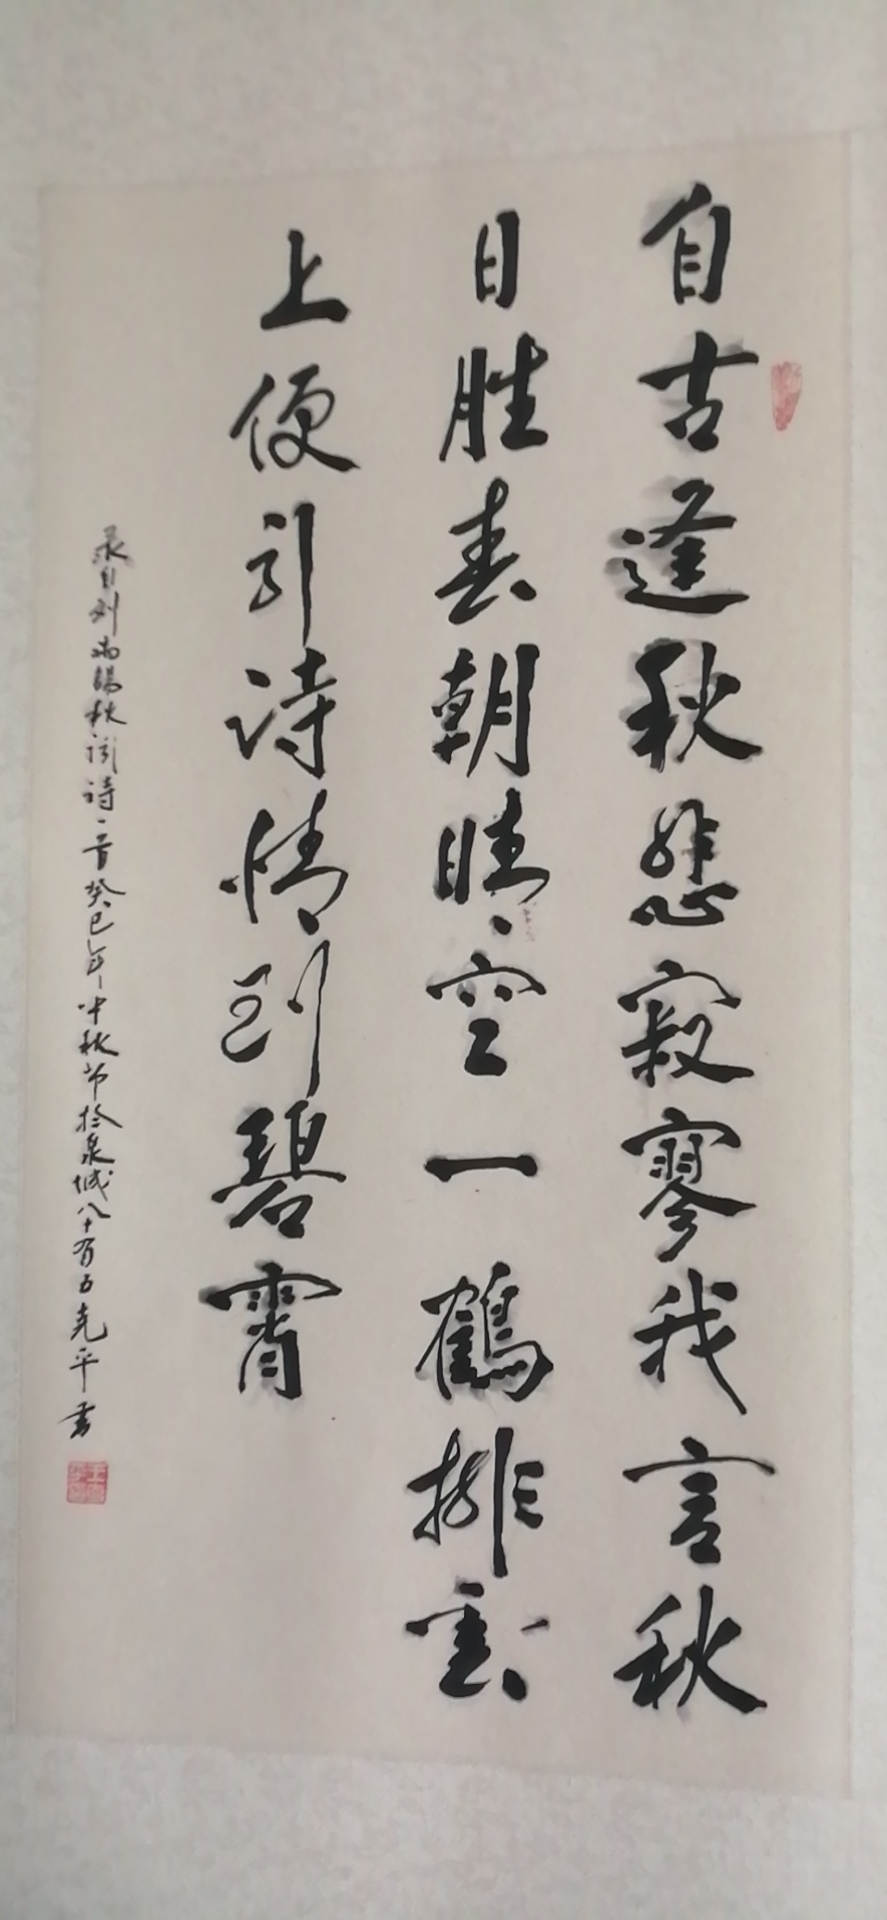 自古逢秋悲寂寥我言秋
日胜春朝晴空一鹤排云
上便引诗情到碧霄
录自刘禹锡秋词诗一首癸巳年中秋节于泉城八十有五克平书